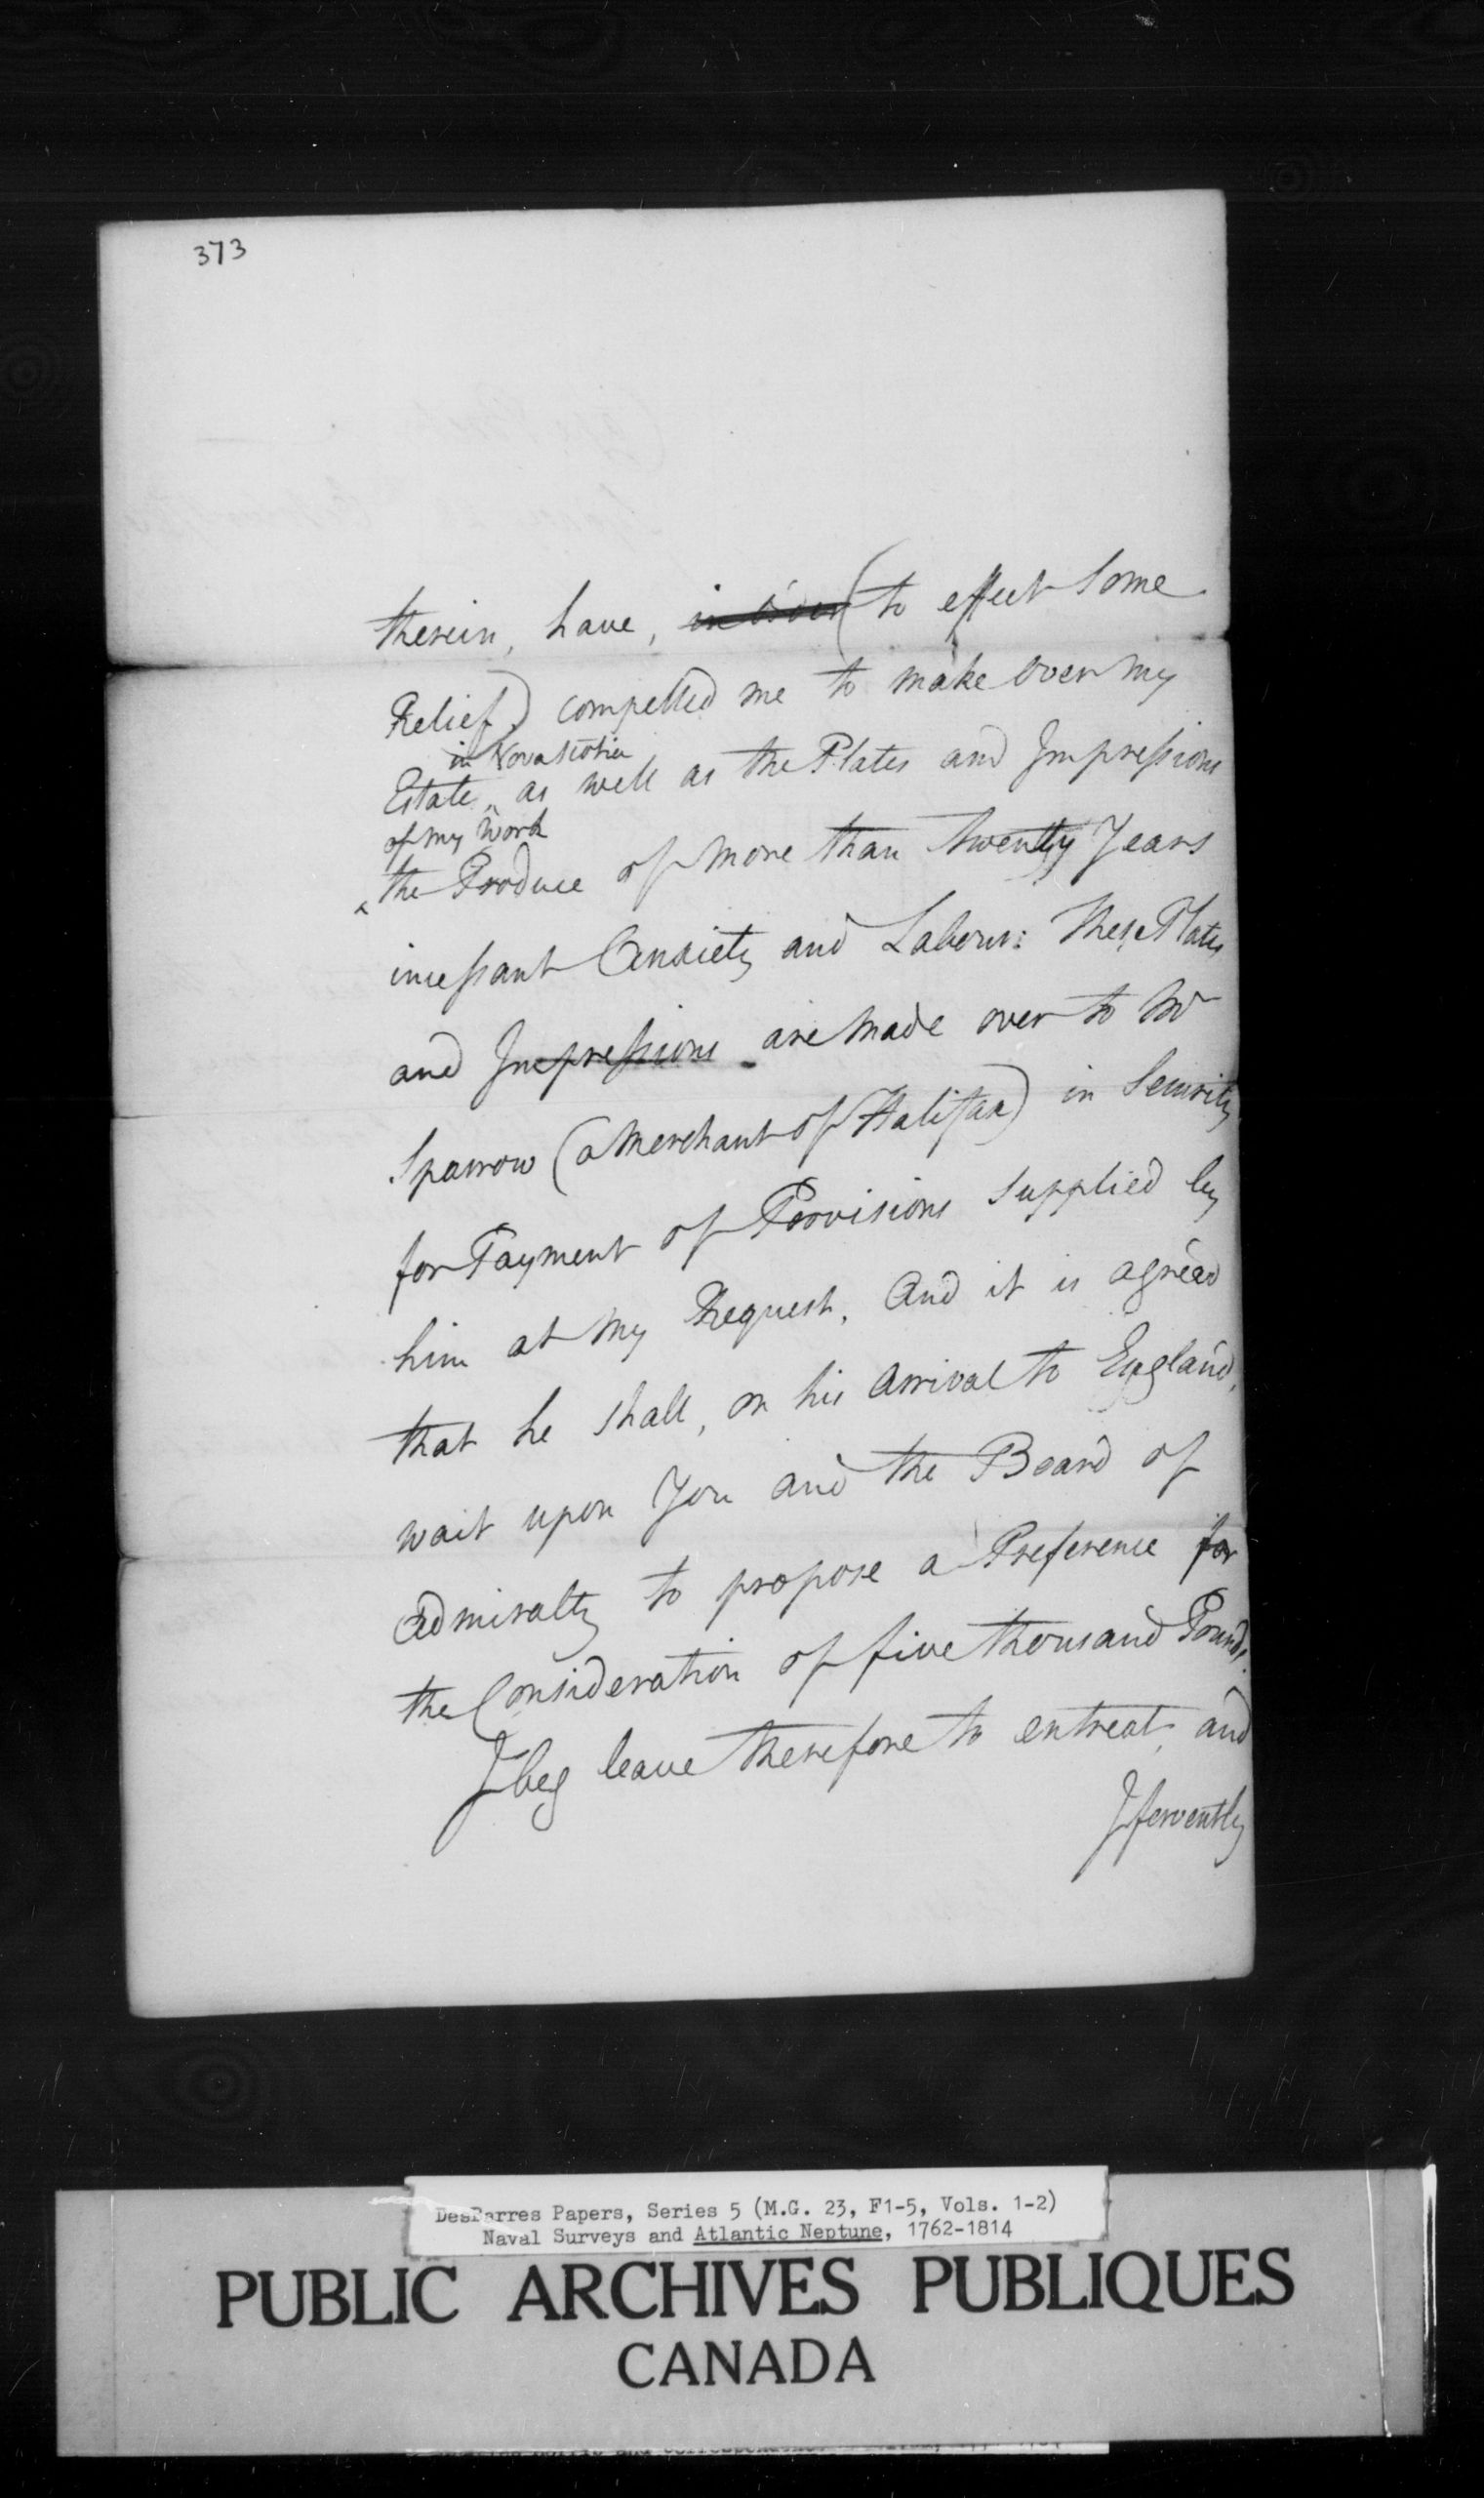 373
therein, have, (to effect Some
Relief) compelled me to make over my
in Nova Scotia
Estate ^ as well as the Plates and Impressions
of my Work
^ the Produce of more than twenty Years
incessant Anxiety and Labour: These Plates
and Impressions are made over to Mr
Sparrow (a Merchant of Halifax) in Security
for Payment of Provisions Supplied by
him at my Request. And it is agreed
that he shall, on his Arrival to England,
wait upon You and the Board of
Admiralty to propose a Preference for
the Consideration of five thousand Pounds.
I beg leave therefore to entreat, and
I fervently
DesBarres Papers, Series 5 (M.G. 23, F1-5, Vols. 1-2)
Naval Surveys and Atlantic Neptune, 1762-1814
PUBLIC ARCHIVES PUBLIQUES
CANADA